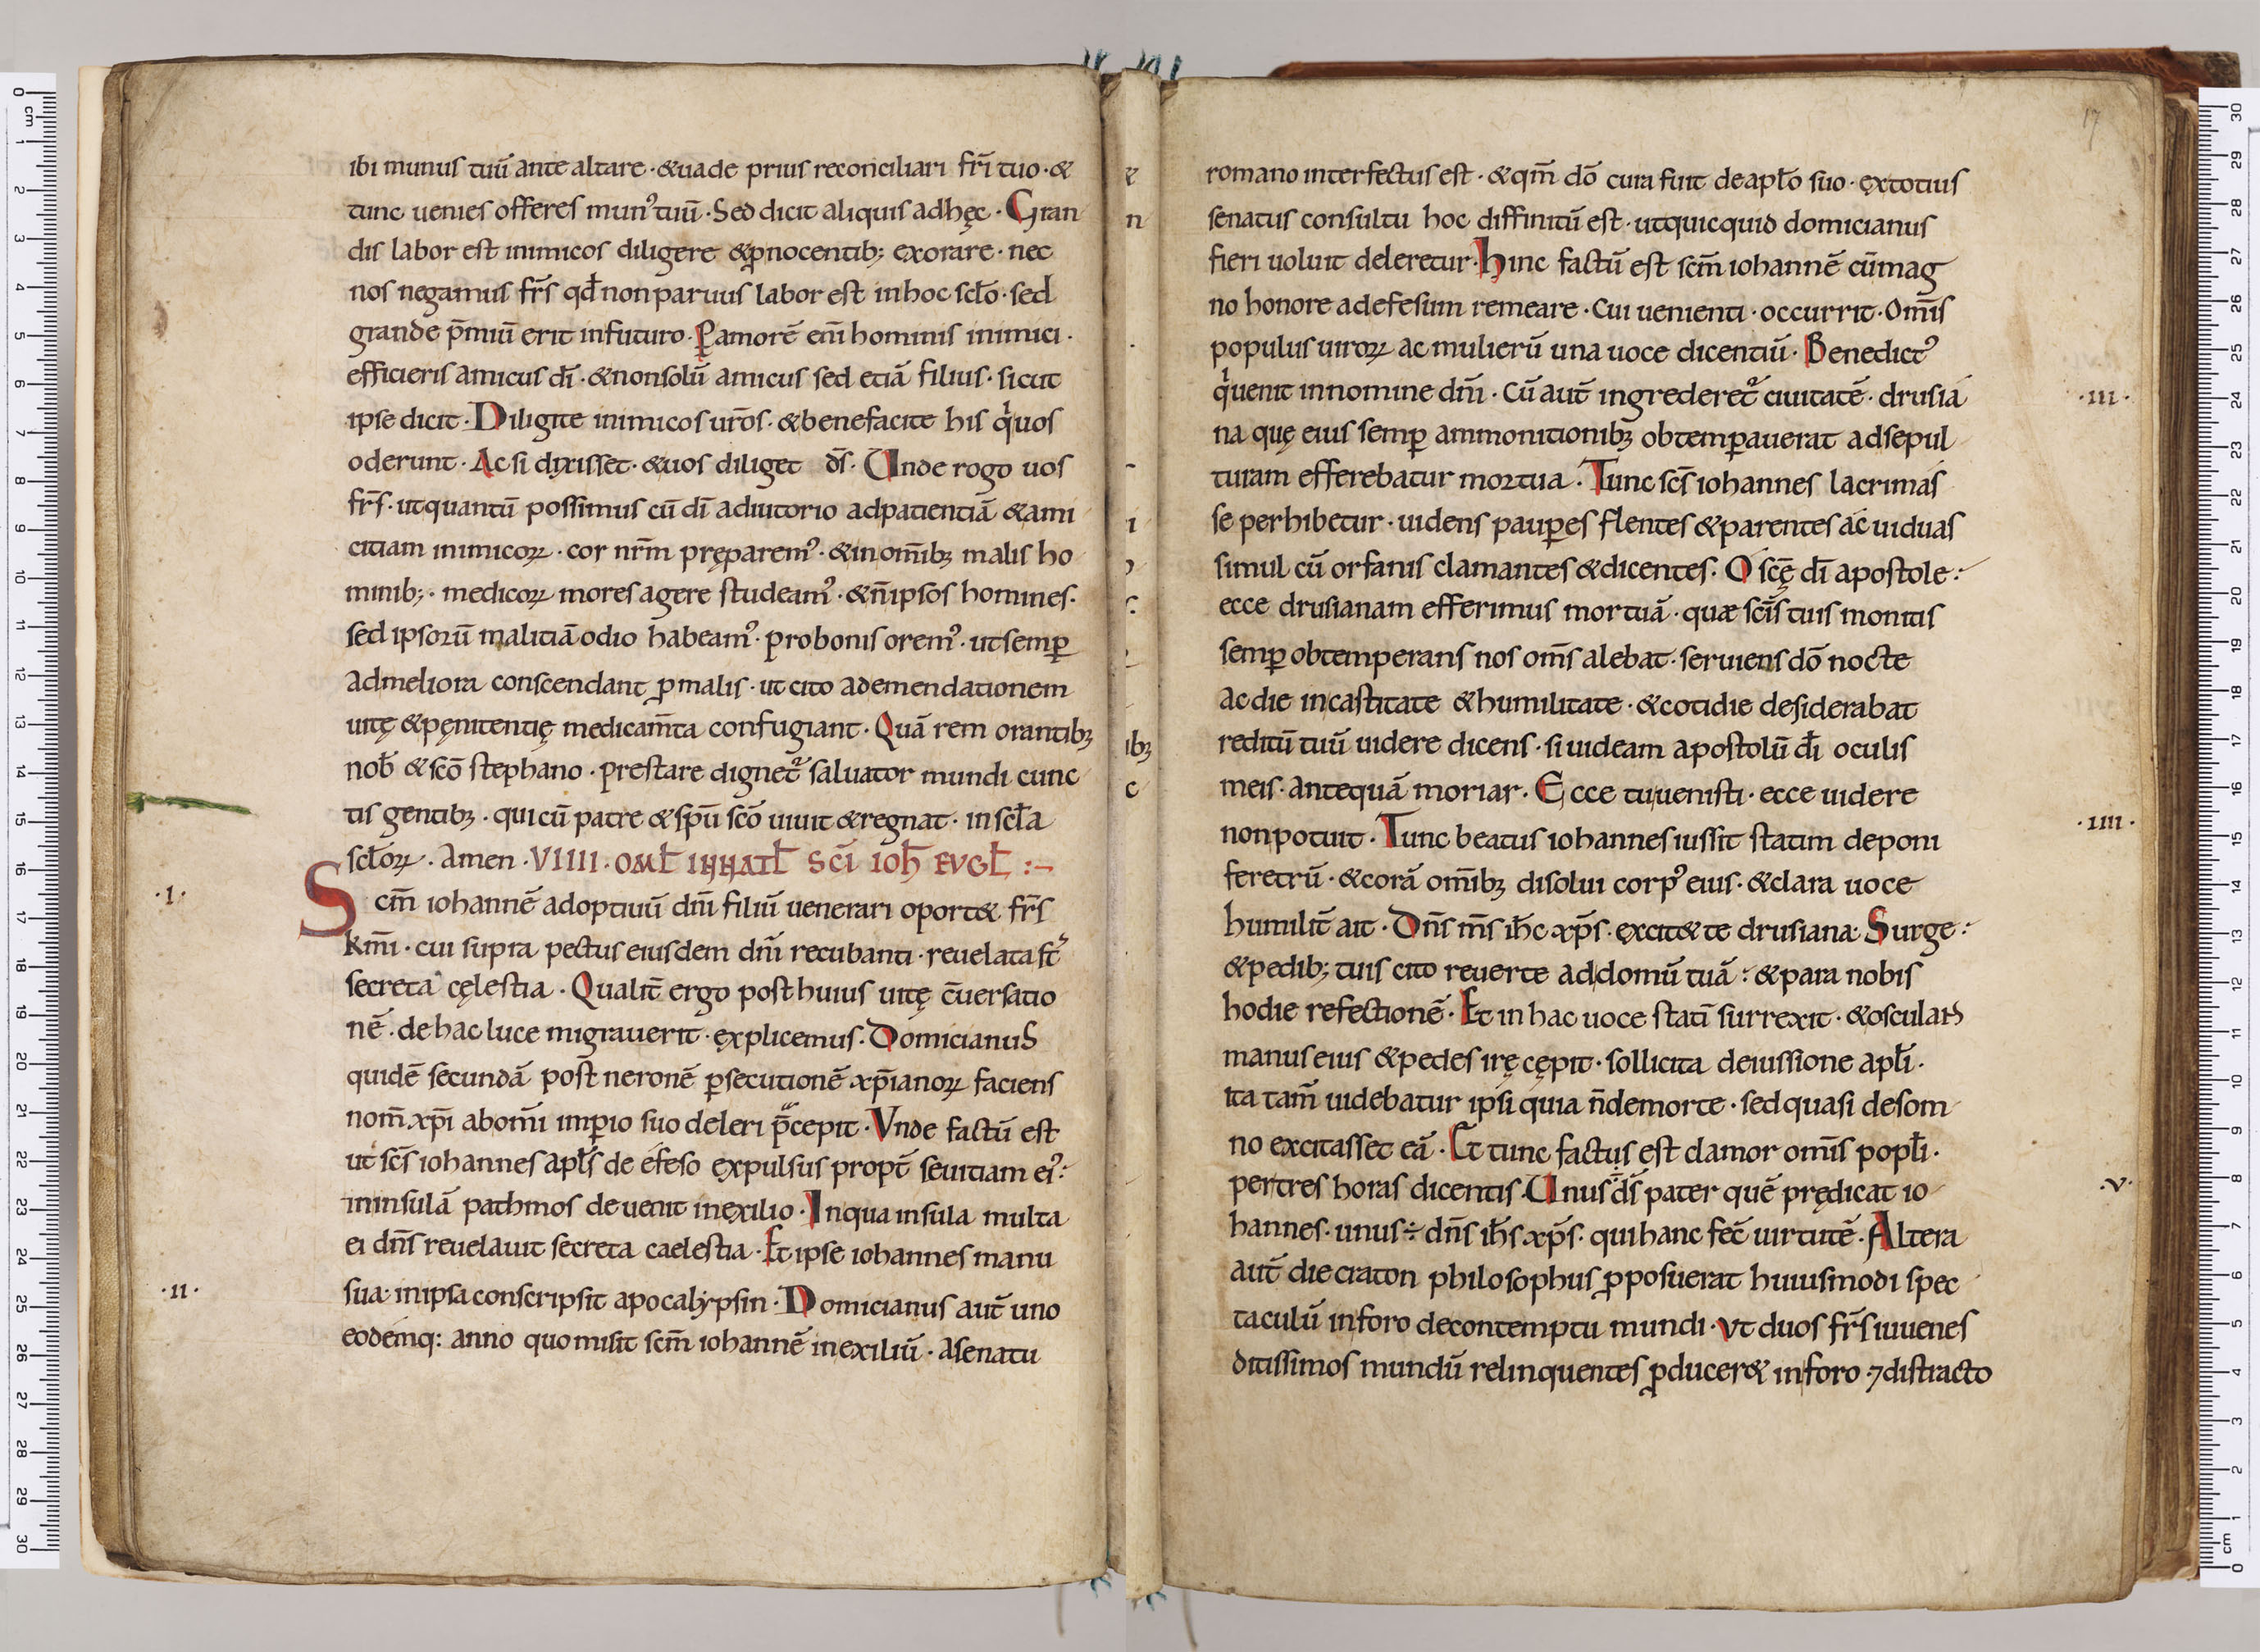 ibi munus tuū ante altare · &uade prius reconciliari fr̄i tuo · &
tunc uenies offeres munꝰ tuū · Sed dicit aliquis adhęc · Gran
dis labor est inimicos diligere &ꝓnocentib; exorare · nec
nos negamus fr̄s qđ non paruus labor est inhoc scło · sed
grande p̄miū erit infuturo · Ꝑamorē eni̅ hominis inimici ·
efficieris amicus dı̅ · &nonsolū amicus sed etiā filius · sicut
ipse dicit · Diligite inimicos ur̄os · &benefacite his qͥuos
oderunt · Acsi dixisset · &uos diliget ds̄ · Unde rogo uos
fr̄s · utquantū possimus cū dı̅ adiutorio adpatientiā &ami
citiam inimicoꝝ · cor nr̄m pręparemꝰ · &inom̄ibꝫ malis ho
minib; · medicoꝝ mores agere studeamꝰ · &n̄ipsos homines ·
sed ipsorū malitiā odio habeamꝰ · probonis oremꝰ · utsemꝑ
admeliora conscendant ꝓmalis · ut cito ademendationem
uitę &pęnitentię medicam̄ta confugiant · Quā rem orantibꝫ
noƀ &scō stephano · prestare dignet᷑ saluator mundi cunc
tis gentibꝫ · qui cū patre &sp̄u scō uiuit &regnat · in scła
scłoꝝ · Amen · VIIII · OMŁ INNATŁ SCI̅ IOĦ EVGŁ :~
· I ·
Scm̄ iohannē adoptiuū dn̄i filiū uenerari oport& fr̄s
km̄i · cui supra pectus eiusdem dn̄i recubanti · reuelata st̄
secreta cęlestia · Qualit̄ ergo post huius uitę c̄uersatio
nē · de hac luce migrauerit · explicemus · Domicianus
quidē secundā post neronē ꝑsecutionē xp̄ianoꝝ faciens
nom̄ xp̄i abom̄i imꝑio suo deleri p̄cepit · Vnde factū est
ut scs̄ iohannes apłs de efeso expulsus propt̄ seuitiam eiꝰ :
ininsulā pathmos deuenit inexilio · Inqua insula multa
ei dn̄s reuelauit secreta caelestia · Et ipse iohannes manu
· II ·
sua · inipsa conscripsit apocalypsin · Domicianus aut̄ uno
eodemq: anno quo misit scm̄ iohannē inexiliū · asenatu
17
romano interfectus est · &qm̄ dō cura fuit deapło suo · extotius
senatus consultu hoc diffinitū est · utquicquid domicianus
fieri uoluit deleretur · Hinc factū est scm̄ iohannē cū mag
no honore adefesum remeare · Cui uenienti · occurrit · Om̄is
populus uiroꝝ ac mulierū una uoce dicentiū · Benedictꝰ
qͥuenit innomine dn̄i · Cū aut̄ ingrederet᷑ ciuitatē · drusia
· III ·
na quę eius semꝑ ammonitionibꝫ obtemꝑauerat adsepul
turam efferebatur mortua · Tunc scs̄ iohannes lacrimas
se perhibetur · uidens pauꝑes flentes &parentes ac uiduas
simul cū orfanis clamantes &dicentes · O scę̄ dı̅ apostole :
ecce drusianam efferimus mortuā · quae scı̅s tuis monitis
semꝑ obtemperans nos om̄s alebat · seruiens dō nocte
ac die incastitate &humilitate · &cotidie desiderabat
reditū tuū uidere dicens · si uideam apostolū dı̅ oculis
meis · antequā moriar · Ecce tu uenisti · ecce uidere
non potuit · Tunc beatus iohannes iussit statim deponi
· IIII ·
feretrū · &corā om̄ibꝫ disolui corpꝰ eius · &clara uoce
humilit̄ ait · Dn̄s m̄s ih̄c xp̄s · excit& te drusiana · Surge :
&pedib; tuis cito reuerte addomū tuā : &para nobis
hodie refectionē · Et in hac uoce statī surrexit · &osculans
manus eius &pedes irę cępit · sollicita deiussione apłi ·
ita tam̄ uidebatur ipsi quia n̄demorte · sed quasi desom
no excitasset eā · Et tunc factus est clamor om̄is popłi ·
pertres horas dicentis · Unus ds̄ pater quē prędicat io
· V ·
hannes · unus ÷ dn̄s ih̄s xp̄s · qui hanc fec̄ uirtutē · Altera
aut̄ die craton philosophus ꝓposuerat huiusmodi spec
taculū inforo decontemptu mundi · Vt duos fr̄s iuuenes
ditissimos mundū relinquentes ꝓducer& inforo · ⁊distracto